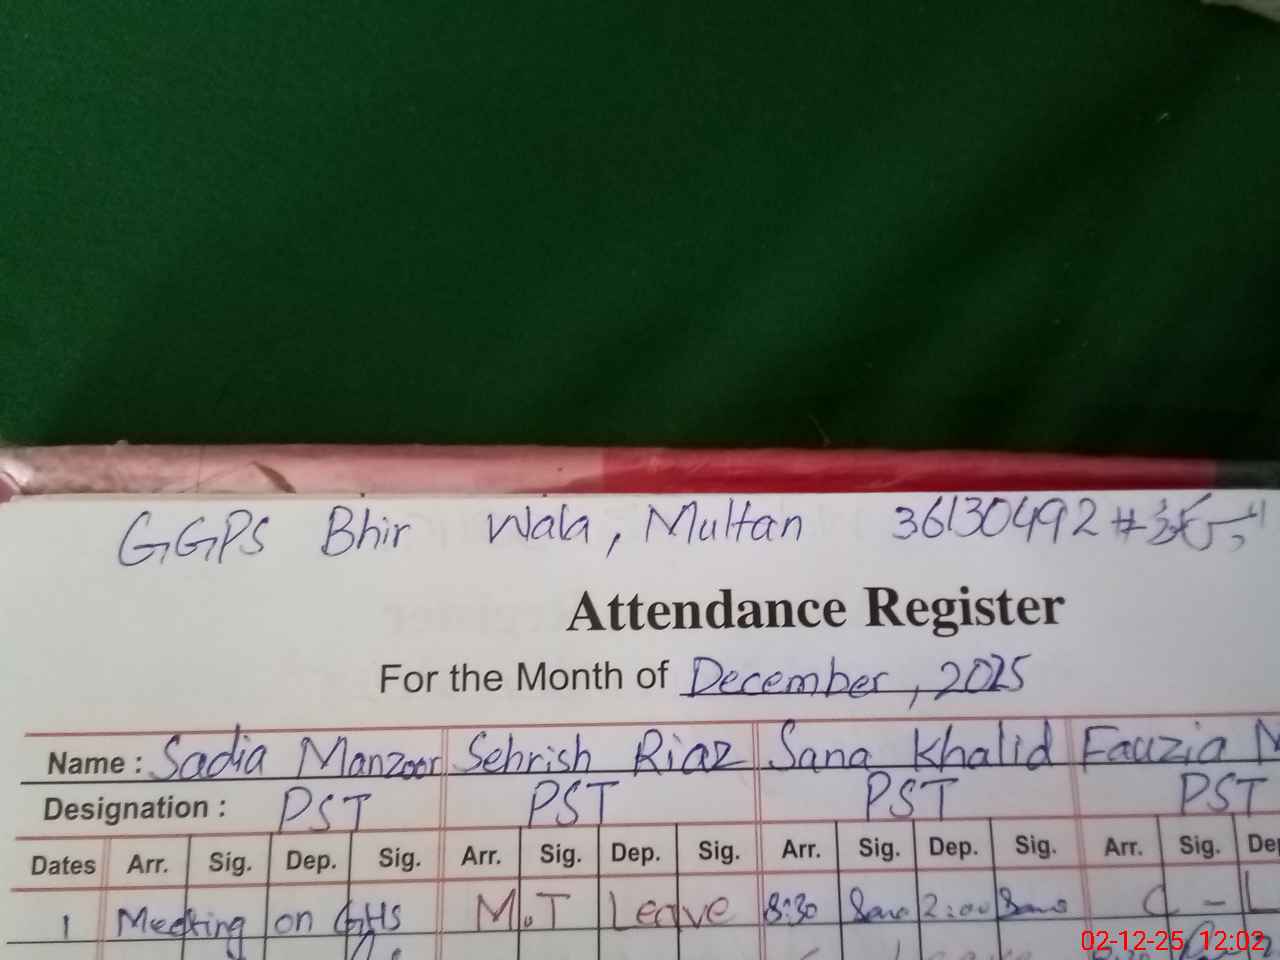 GGPS Bhir Wala, Multan 36130492#
Attendance Register
For the Month of December, 2025
Name : Sadia Manzoor Sehrish Riaz Sana Khalid Fauzia
Designation : PST PST PST PST
Dates Arr. Sig. Dep. Sig. Arr. Sig. Dep. Sig. Arr. Sig. Dep. Sig. Arr. Sig. De
1 Meeting on GHS M.T Leave 8:30 Sana 2:00 Sana C - L
02-12-25 12:02